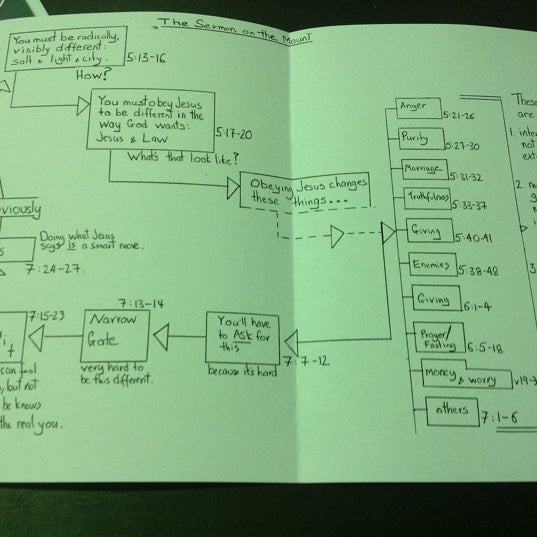 The Sermon on the Mount
You must be radically,
visibly different:
salt & light & city.
5:13-16
How?
You must obey Jesus
to be different in the
way God wants:
Jesus & Law
5:17-20
What's that look like?
Obeying Jesus changes
these things...
Anger
5:21-26
Purity
5:27-30
Marriage
5:31-32
Truthfulness
5:33-37
Giving
5:40-41
Enemies
5:38-48
Giving
6:1-4
Prayer/
Fasting
6:5-18
Money & worry
v19-3
others
7:1-6
These
are
1. inte
not
ext
2. m
g
3.
You'll have
to ASK for
this
7:7-12
because its hard
7:13-14
Narrow
Gate
very hard to
be this different.
7:15-23
can fool
, but not
he knows
the real you.
viously
Doing what Jesus
says IS a smart move.
7:24-27.